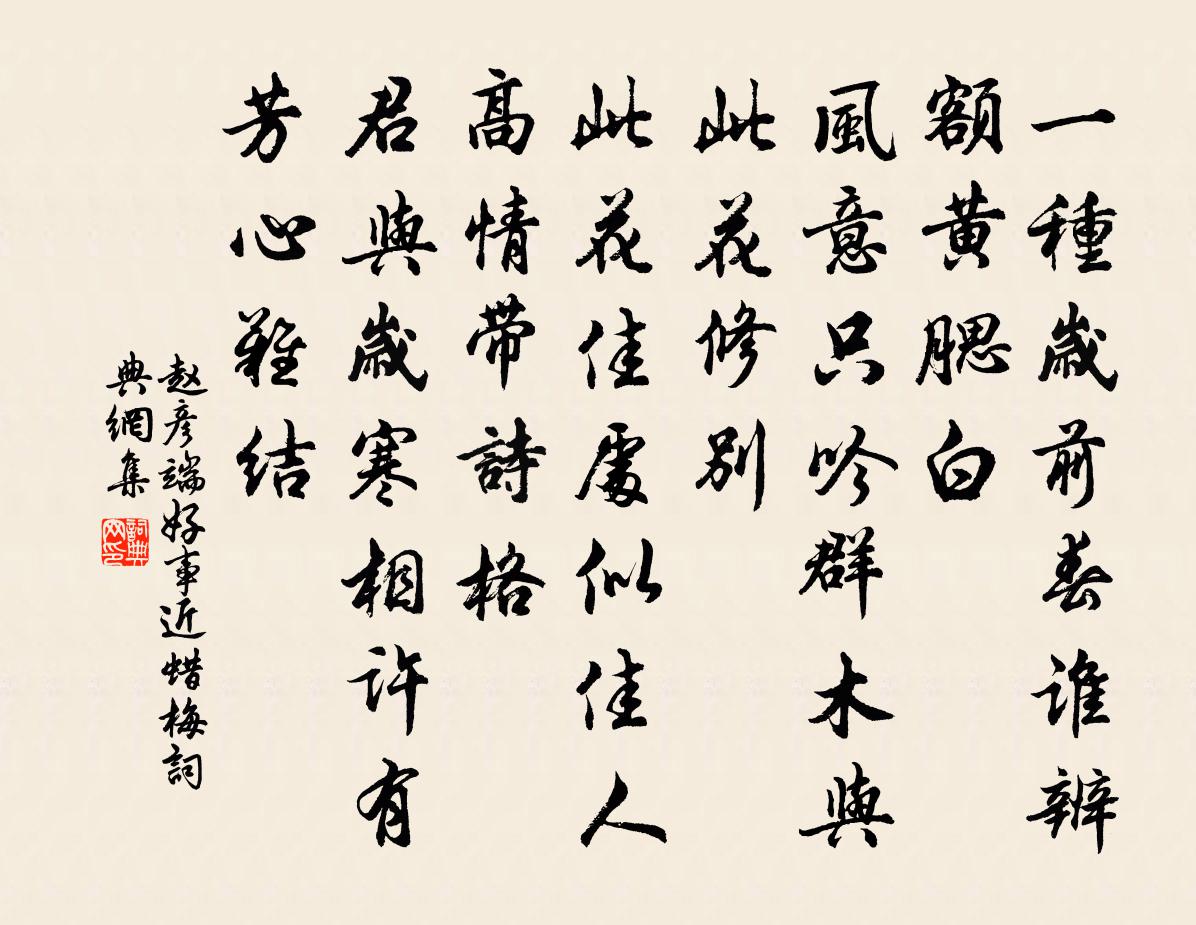 一種歲前春誰辨
額黃腮白
風意只吟群木與
此花修別
此花佳處似佳人
高情帶詩格
君與歲寒相許有
芳心難結
赵彥端好事近蜡梅詞
典網集
詞典网印